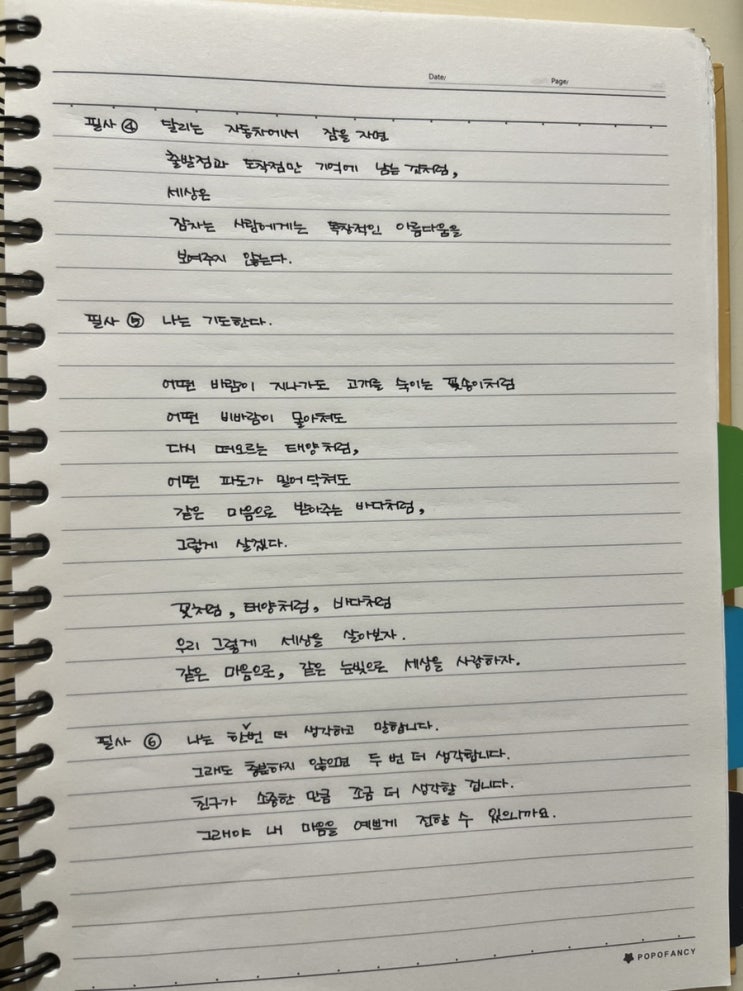 Date/ Page/
필사 ④ 달리는 자동차에서 잠을 자면
출발점과 도착점만 기억에 남는 것처럼,
세상은
잠자는 사람에게는 독창적인 아름다움을
보여주지 않는다.
필사 ⑤ 나는 기도한다.
어떤 바람이 지나가도 고개를 숙이는 꽃송이처럼
어떤 비바람이 몰아쳐도
다시 떠오르는 태양처럼,
어떤 파도가 밀어닥쳐도
같은 마음으로 받아주는 바다처럼,
그렇게 살겠다.
꽃처럼, 태양처럼, 바다처럼
우리 그렇게 세상을 살아보자.
같은 마음으로, 같은 눈빛으로 세상을 사랑하자.
필사 ⑥ 나는 한번 더 생각하고 말합니다.
그래도 충분하지 않으면 두 번 더 생각합니다.
친구가 소중한 만큼 조금 더 생각할 겁니다.
그래야 내 마음을 예쁘게 전할 수 있으니까요.
POPOFANCY